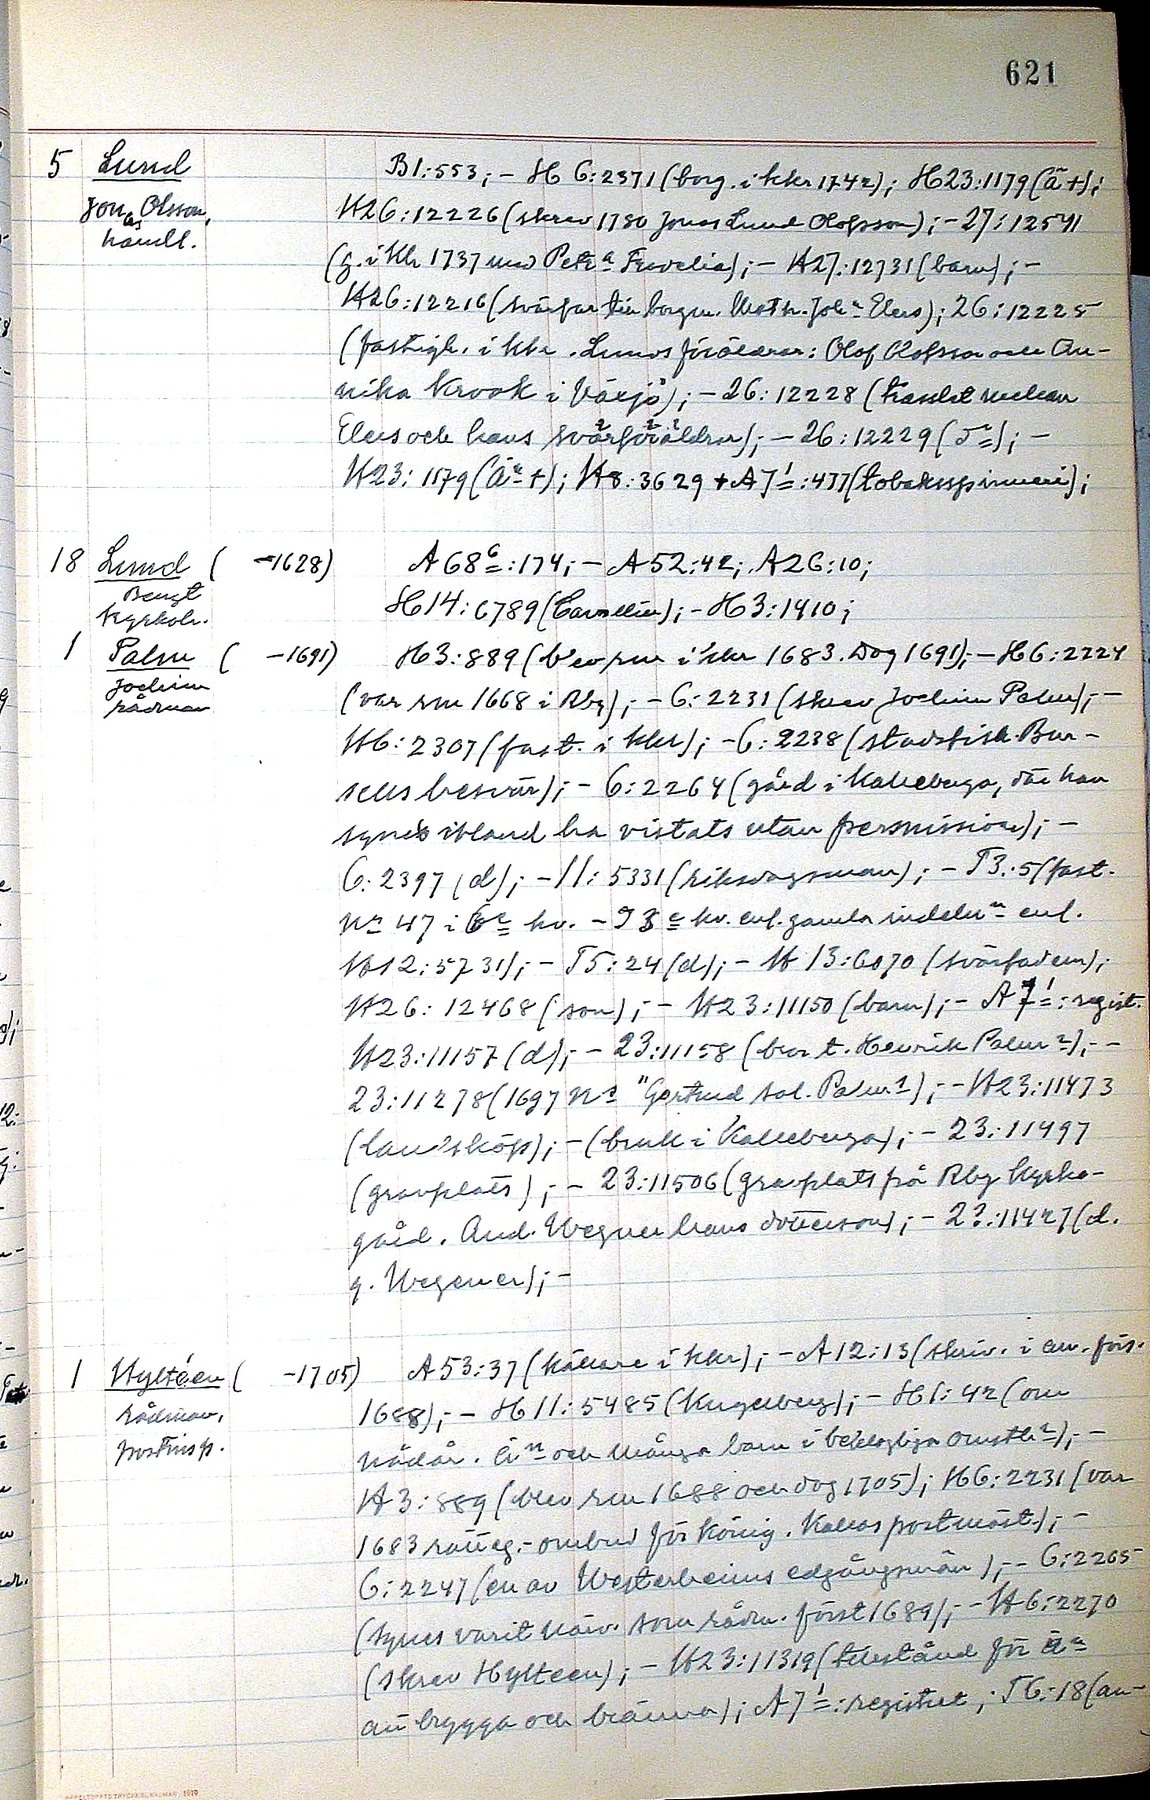 621
5 Lund B1:553; - H 6:2371 (borg. i kkr 1742); H23:1179 (ä +);
Jonas Olsson, H26:12226 (skrev 1730 Jonas Lund Olofsson); - 27:12541
handl. (g. i kkr 1737 med Petra); - H27:12731 (barn); -
H26:12216 (svärfar till borgm. Elers); 26:12225
(fastigh. i kkr. Lunds föräldrar: Olof Olofsson och An-
nika Krook i Växjö); - 26:12228 (trasslet mellan
Elers och hans svärföräldrar); - 26:12229
H23:1179 (Än +); H8:3629 + A7¹:437 (tobaksspinneri);
18 Lund ( -1628) A 68:174; - A 52:42; A26:10;
Bengt H14:6789; - H3:1410;
kyrkoh.
1 Palm ( -1691) H3:889 (blev rm i kkr 1683. Dog 1691); - H6:2224
Jochim (var rm 1668 i Rby); - 6:2231 (skrev Jochim Palm); -
rådman
H6:2307 (fast. i kkr); - 6:2238 (stadsfisk. Bur-
sells besvär); - 6:2264 (gård i Kalleberga, där han
synes ibland ha vistats utan permission); -
6:2397 (d); - 11:5331 (riksdagsman); - T3:5 (fast.
No 47 i kv. - kv. enl. gamla indeln enl.
H12:5731); - T5:24 (d); - H 13:6070 (svärfadern);
H26:12468 (son); - H23:11150 (barn); - A 7¹: regist.
H23:11157 (d); - 23:11158 (bror t. Henrik Palm?); -
23:11278 (1697 "Gertrud sal. Palm"); - H23:11473
(köp); - (bruk i Kalleberga); - 23:11497
(gravplats); - 23:11506 (gravplats på Rby kyrko-
gård. And. Wegner hans dotterson); - 23:11427 (d.
g. Wegener); -
1 Hyltéen ( -1705) A53:37 (källare i kkr); - A12:13 (skriv. i förs.
rådman, 1688); - H11:5485 (Kugelberg); - H1:42 (om
postinsp. nådår. Än och många barn i beklagliga omsth); -
H3:889 (blev rm 1688 och dog 1705); H6:2231 (var
1683 ombud för Konig. Kallas postmäst.); -
6:2247 (en av Westerheims edgångsmän); - 6:2265
(synes varit närv. som rådm. först 1689); - H6:2270
(skrev Hylteen); - H23:11319 (tillstånd för än
att brygga och bränna); A7¹: registret; T6:18 (an-